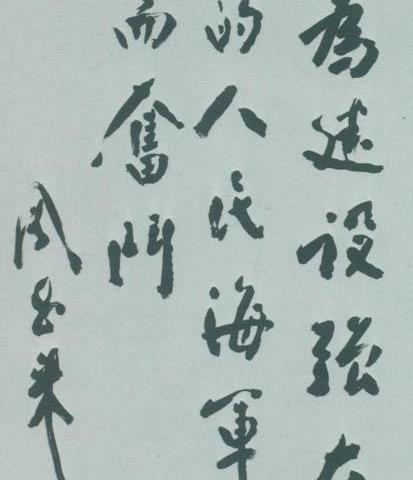 為建设強大
的人民海軍
而奮鬥
周恩来